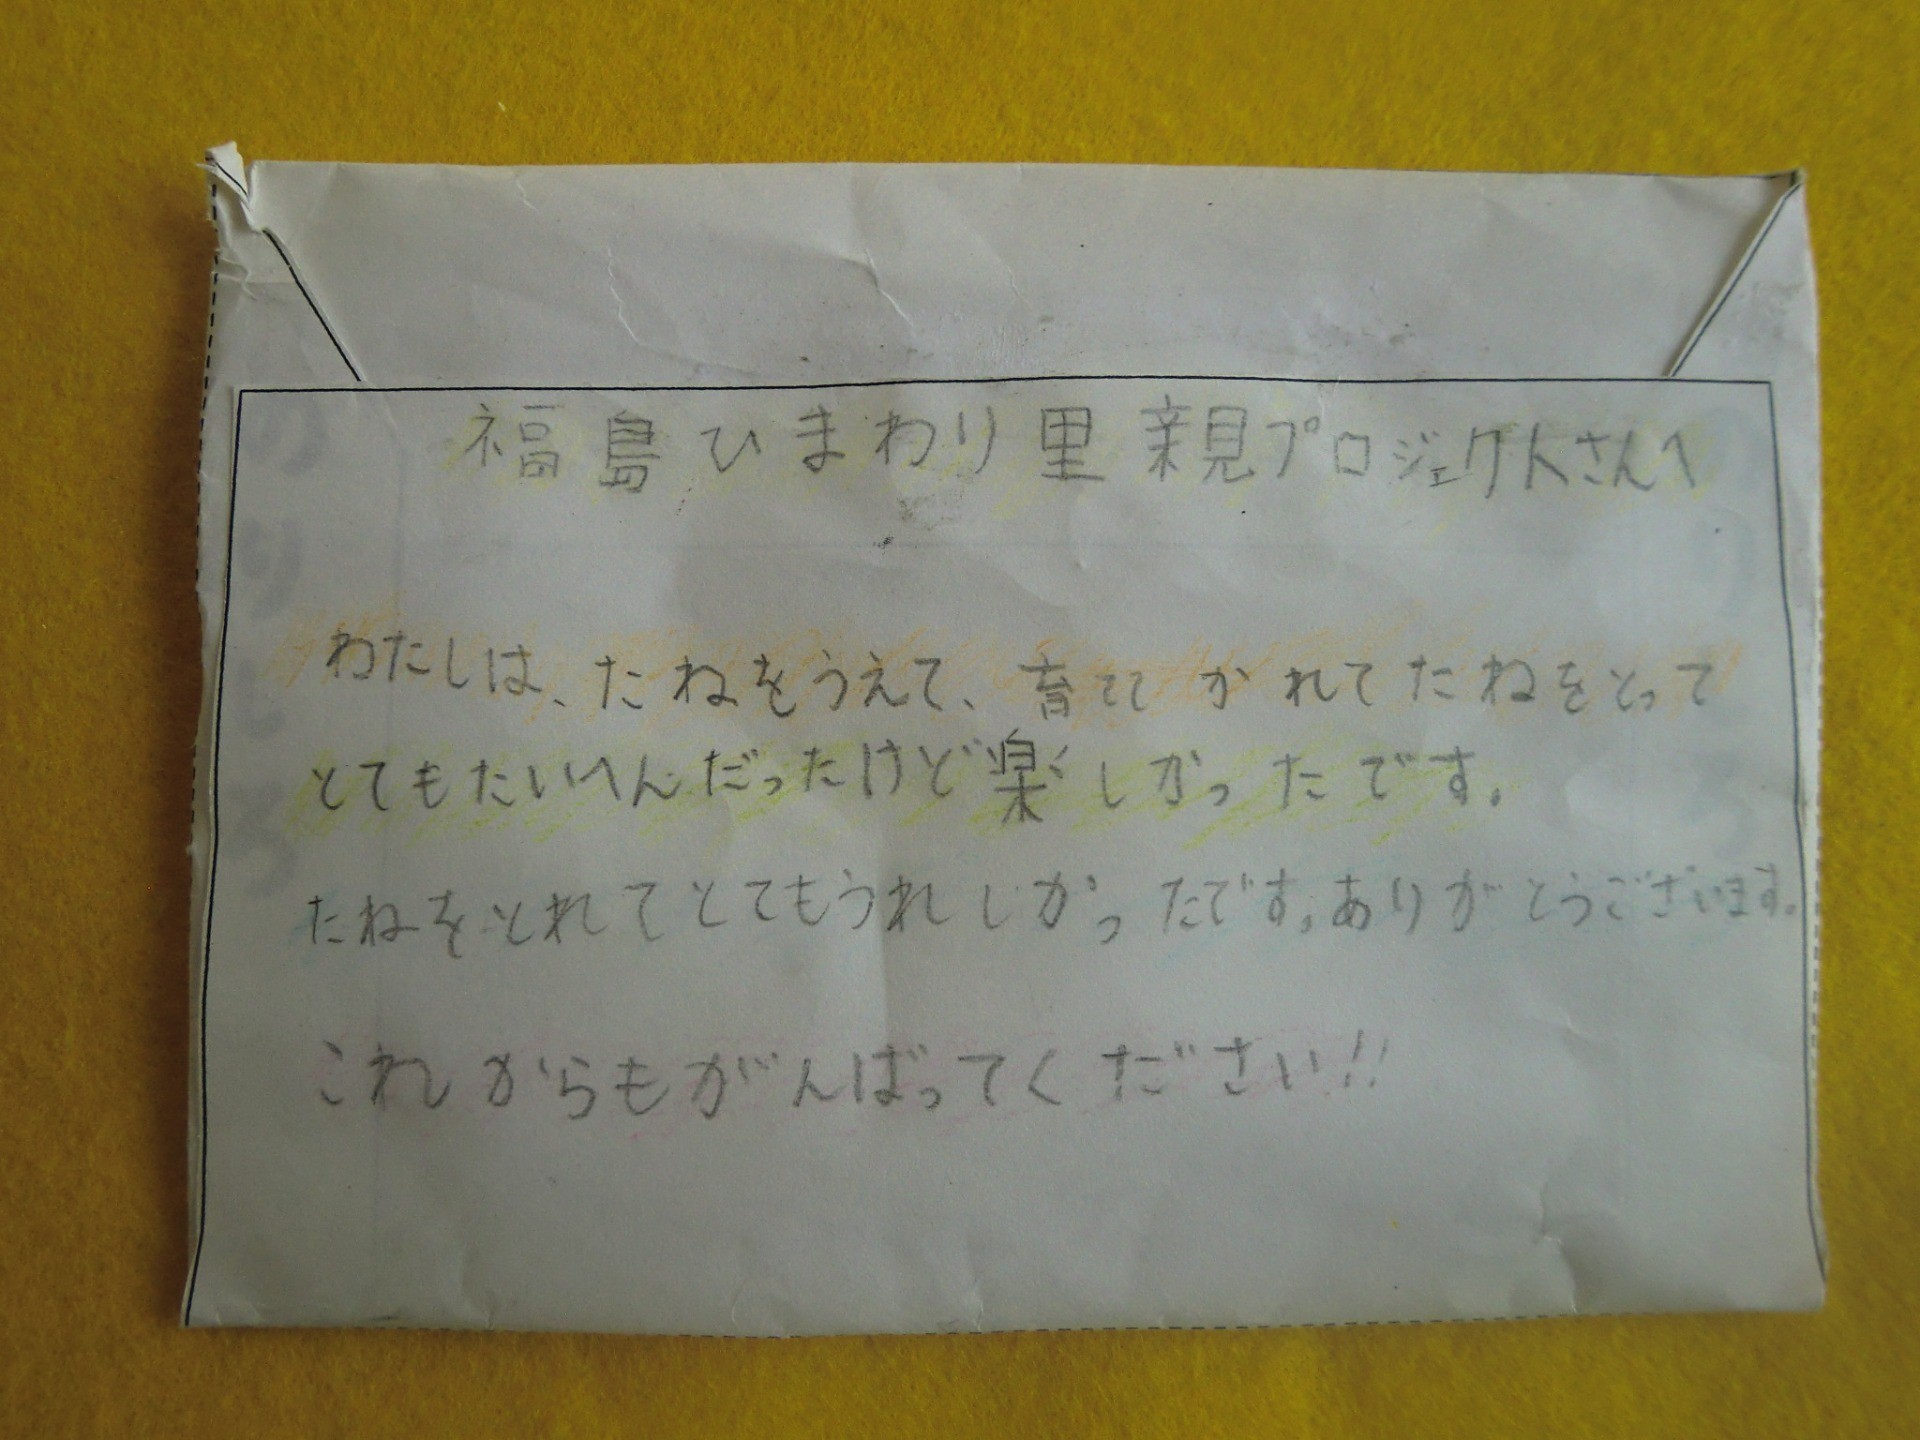 福島ひまわり里親プロジェクトさんへ
わたしは、たねをうえて、育てて かれてたねをとって
とてもたいへんだったけど楽しかったです。
たねをとれてとてもうれしかったです。ありがとうございます。
これからもがんばってください!!